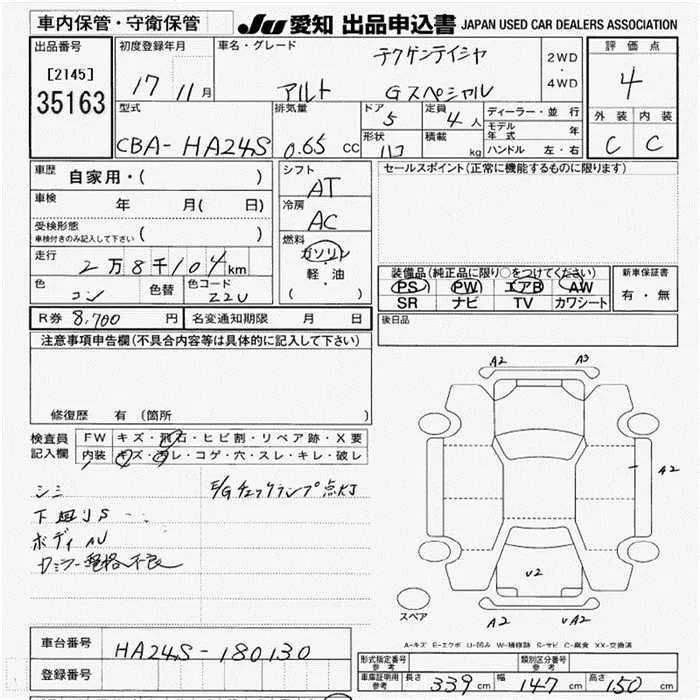 車内保管・守衛保管
JU 愛知 出品申込書 JAPAN USED CAR DEALERS ASSOCIATION
出品番号
[2145]
35163
初度登録年月
17 11月
車名・グレード
テクゲンテイシャ
アルト Gスペシャル
2WD
・
4WD
評価点
4
外装 内装
C C
型式
CBA- HA24S
排気量
0.65 cc
ドア
5
形状
ハコ
定員
4人
積載
kg
ディーラー・並行
モデル年式 年
ハンドル 左・右
車歴
自家用・( )
車検
年 月( 日)
受検形態
車検付きのみ記入して下さい ( )
走行
2万8千104km
色
コン
色替
色コード
ZZU
シフト
AT
冷房
AC
燃料
ガソリン
・
軽・油
( )
セールスポイント(正常に機能するものに限ります)
装備品(純正品に限り○をつけてください)
PS PW エアB AW
SR ナビ TV カワシート
新車保証書
有・無
R券 8,700 円 名変通知期限 月 日
後日品
注意事項申告欄(不具合内容等は具体的に記入して下さい)
修復歴 有(箇所 )
検査員記入欄
FW キズ・飛石・ヒビ割・リペア跡・X要
内装 キズ・汚レ・コゲ・穴・スレ・キレ・破レ
シミ
E/Gチェックランプ点灯
下廻りS
ボディAU
A2 A3
A2
U2
A2 UA2
スペア
A-キズ E-エクボ U-凹み W-補修跡 S-サビ C-腐食 XX-交換済
車台番号 HA24S-180130
登録番号
形式指定番号 参考
類別区分番号 参考
車庫証明用 参考 長さ 339 cm 幅 147 cm 高さ 150 cm